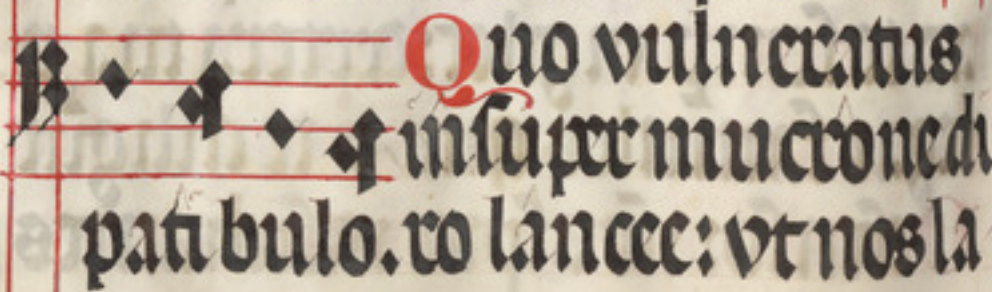 Quo vulneratus
insuper mucrone di
pati bulo. ro lancee: vt nos la